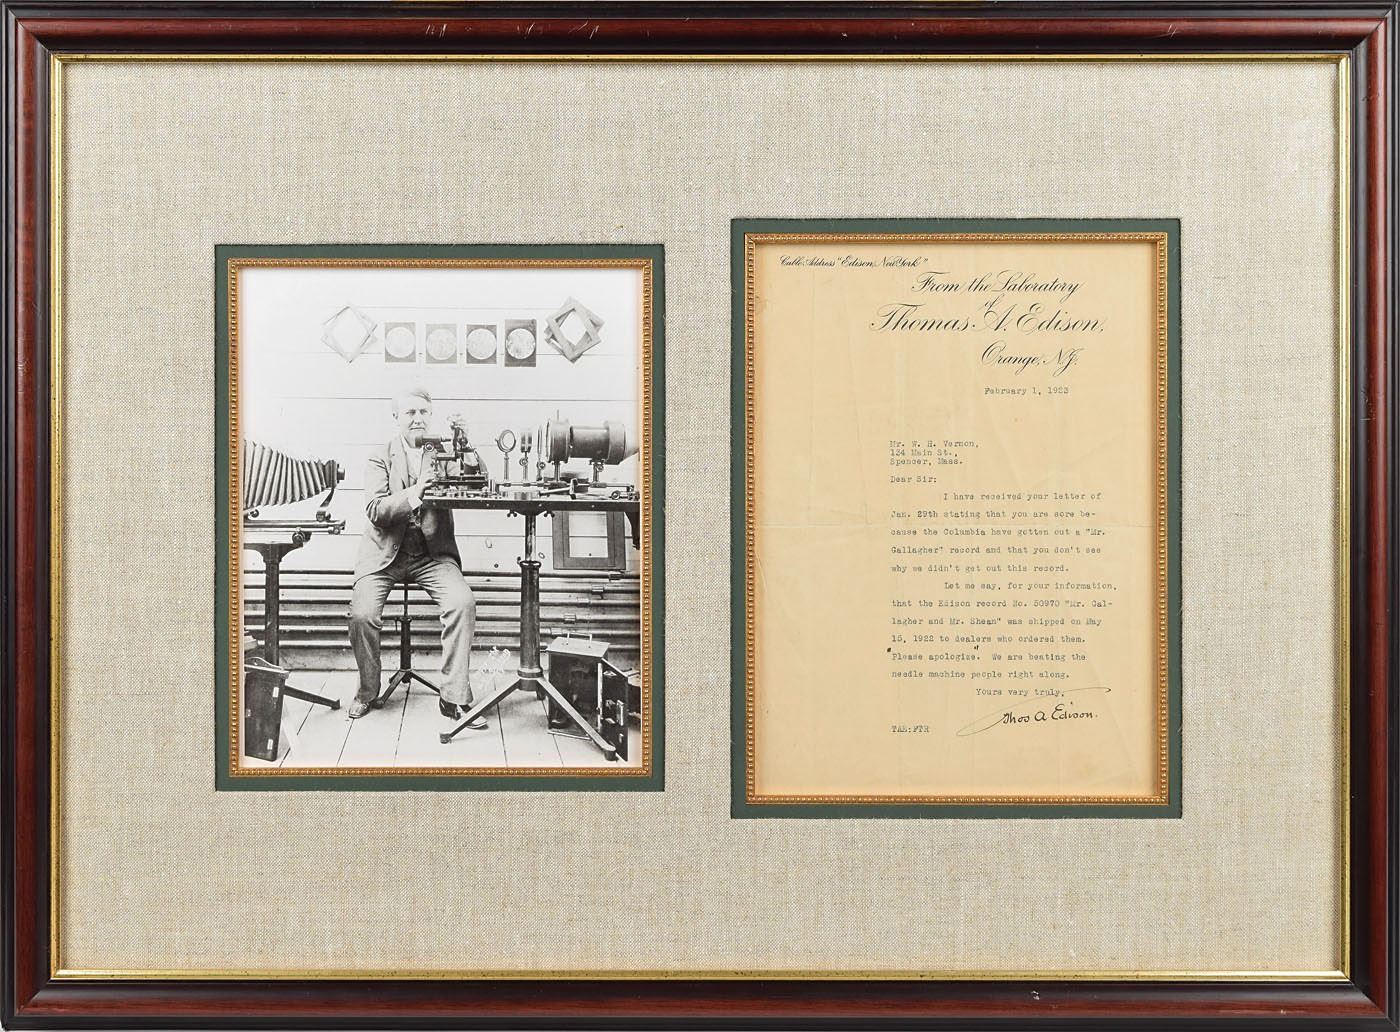 Cable Address "Edison, New York"
From the Laboratory
of
Thomas A. Edison,
Orange, N.J.
February 1, 1923
Mr. W. H. Vernon,
134 Main St.,
Spencer, Mass.
Dear Sir:
I have received your letter of
Jan. 29th stating that you are sore be-
cause the Columbia have gotten out a "Mr.
Gallagher" record and that you don't see
why we didn't get out this record.
Let me say, for your information,
that the Edison record No. 50970 "Mr. Gal-
lagher and Mr. Shean" was shipped on May
15, 1922 to dealers who ordered them.
"Please apologize". We are beating the
needle machine people right along.
Yours very truly,
Thos A Edison.
TAE:FTR